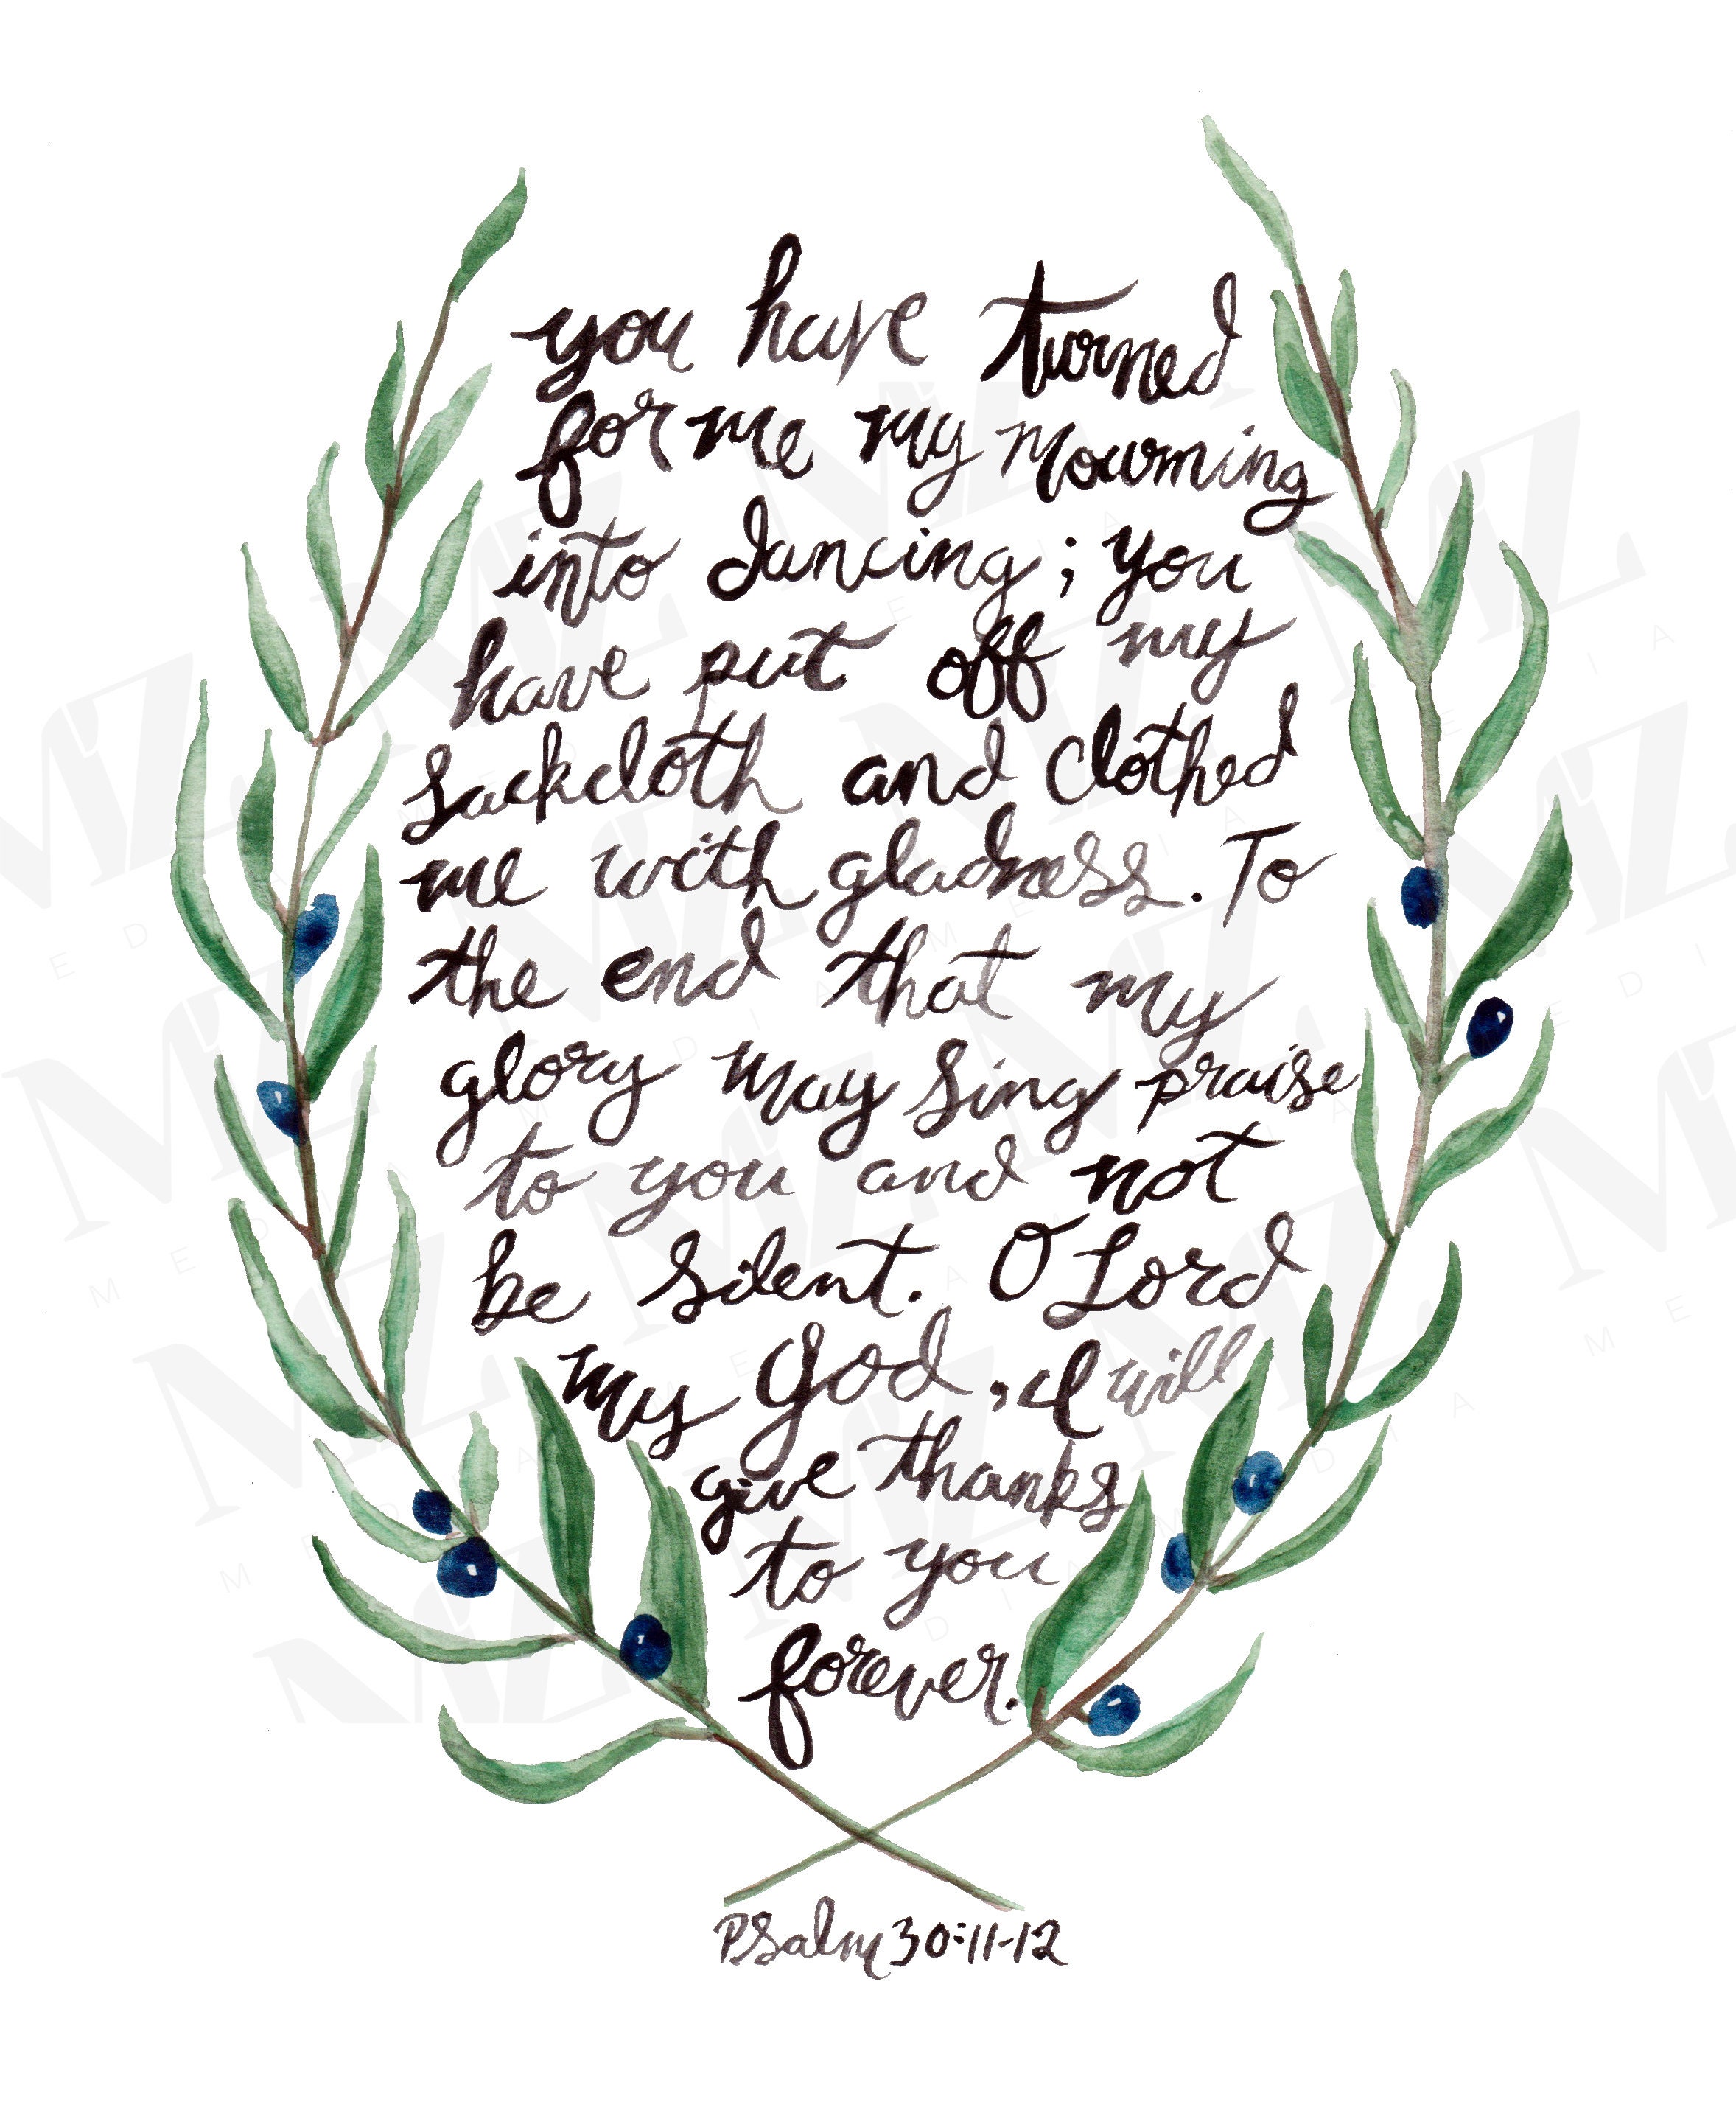 you have turned
for me my mourning
into dancing; you
have put off my
sackcloth and clothed
me with gladness. To
the end that my
glory may sing praise
to you and not
be silent. O Lord
my God, I will
give thanks
to you
forever.
Psalm 30:11-12
MZ
MEDIA